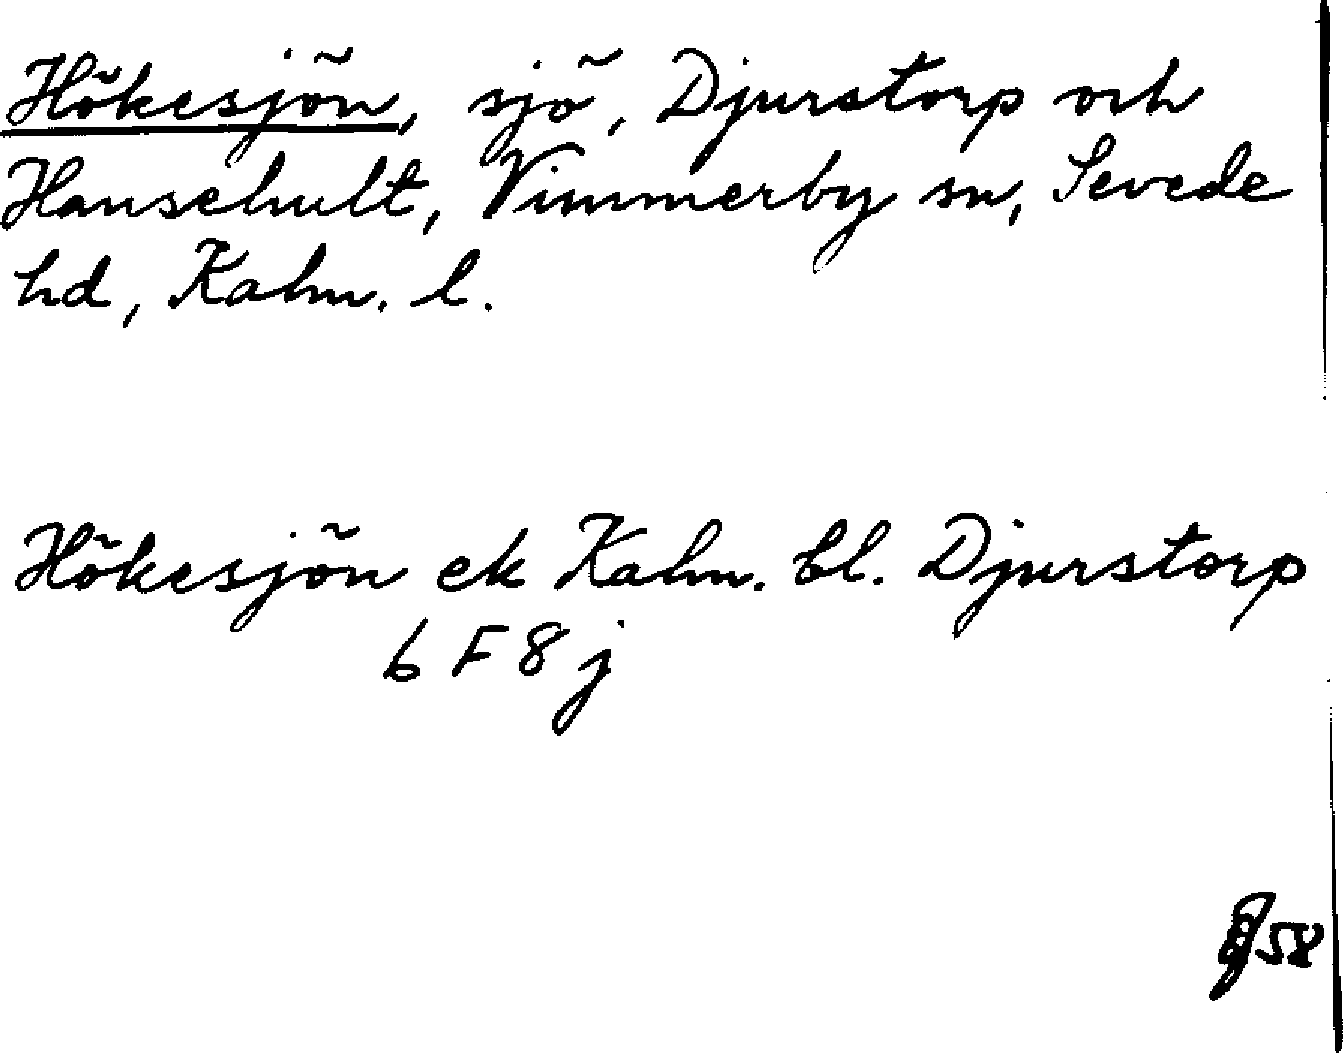 Hökesjön, sjö, Djurstorp och
Hansehult, Vimmerby sn, Sevede
hd, Kalm. l.
Hökesjön ek Kalm. bl. Djurstorp
6 F 8 j